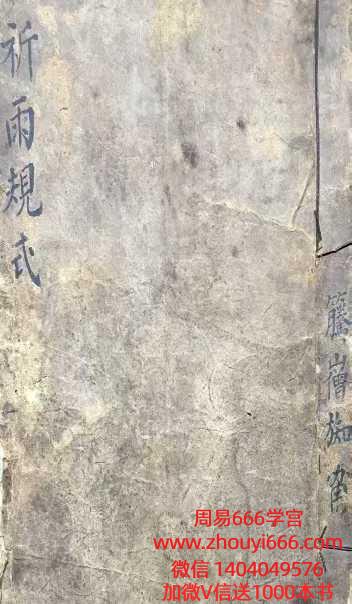 祈雨規式
周易666学宫
www.zhouyi666.com
微信 1404049576
加微V信送1000本书